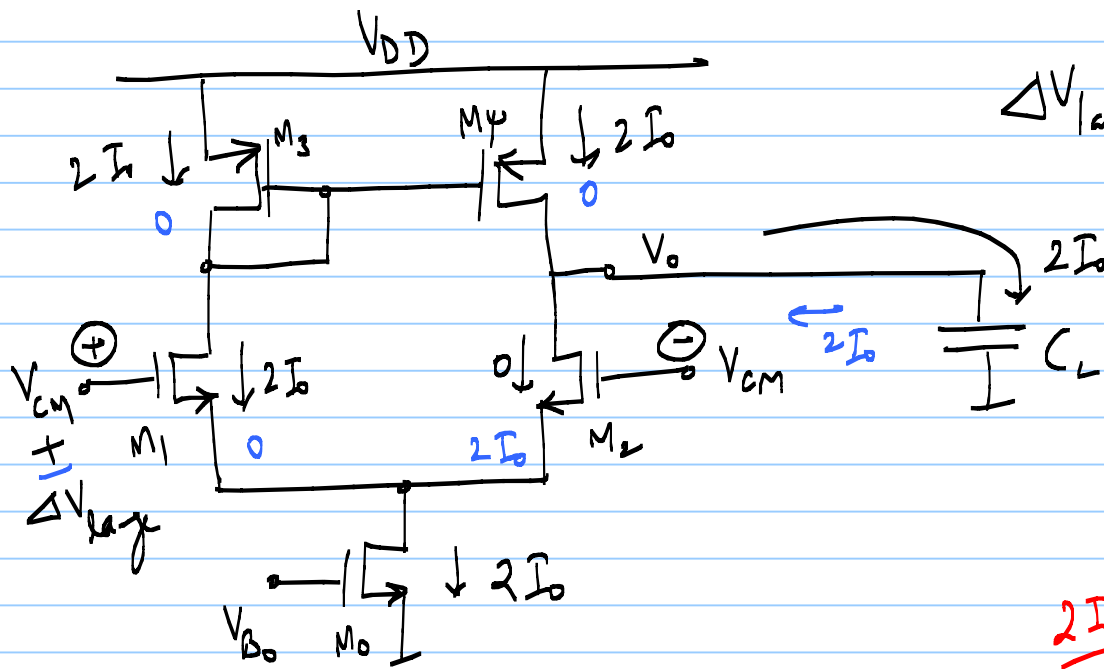 V_DD
ΔV_la
2I_0 ↓ M_3 M4 ↓ 2I_0
0 0
V_o 2I_0
⊕ ⊖ ← 2I_0
V_CM ↓ 2I_0 0↓ V_CM C_L
± M_1 0 2I_0 M_2
ΔV_large
↓ 2I_0
V_B0 M_0 2I